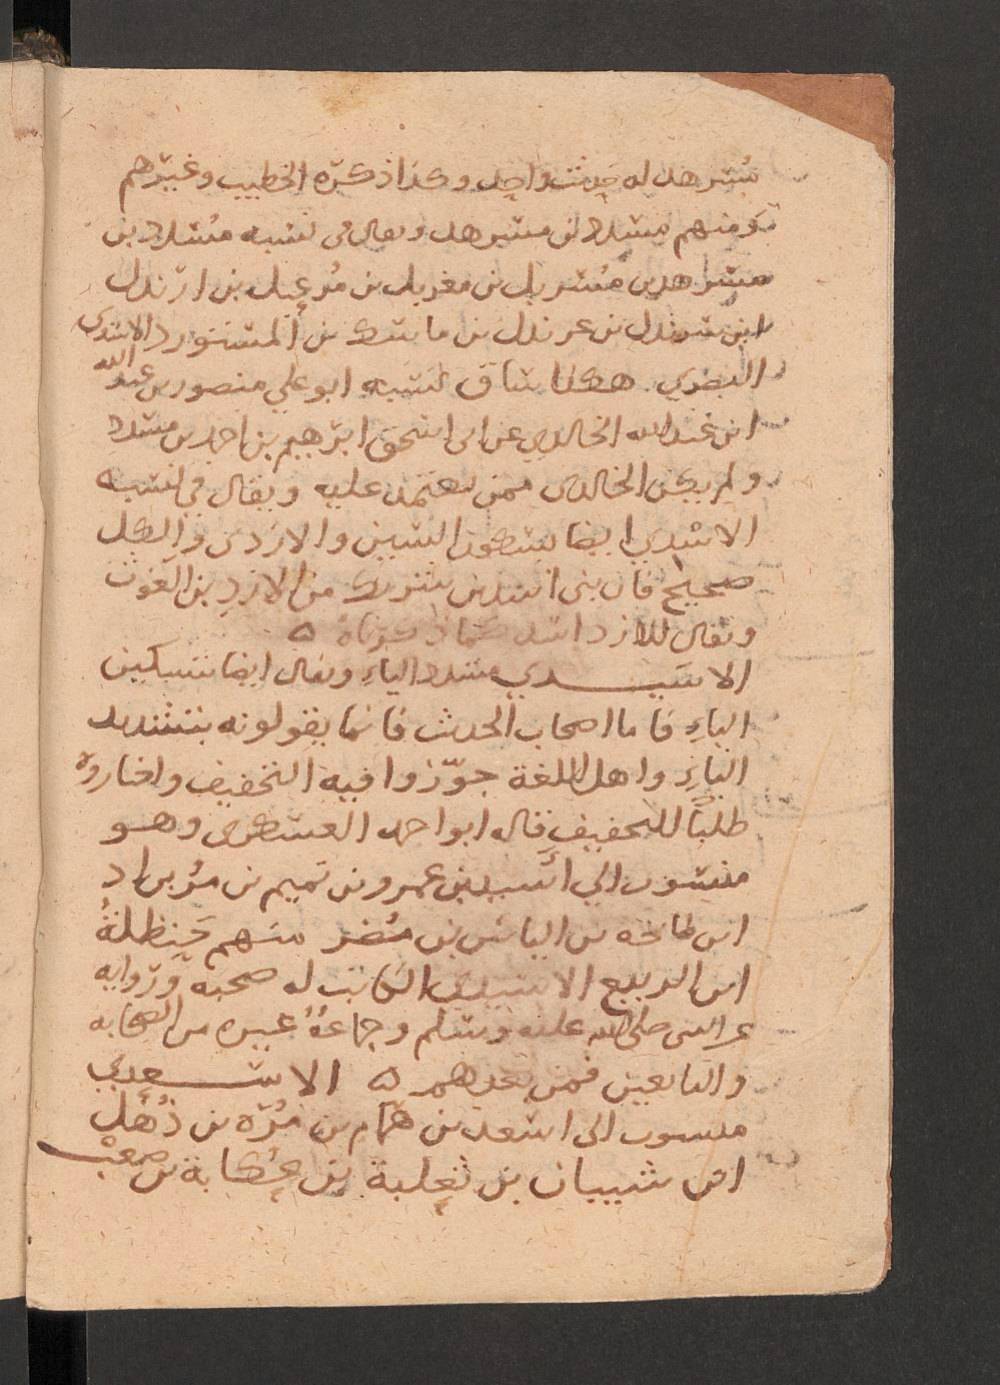 مسرهد له حديث واحد وكذا ذكره الخطيب وغيرهم
ومنهم مسدد بن مسرهد ويقال في نسبه مسدد بن
مسرهد بن مسربل بن مغربل بن مرعبل بن ارندل
ابن سرندل بن عرندل بن ماسك بن المستورد الاسدي
البصري هكذا ساق نسبه ابو علي منصور بن عبد الله
ابن عبد الله الخالدي عن ابي اسحق ابرهيم بن احمد بن مسدد
ولم يكن الخالدي ممن يعتمد عليه ويقال في نسبه
الاسدي ايضا بسكون السين والازدي والكل
صحيح فان بني اسد بن شريك من الازد بن الغوث
ويقال للازد اسد كما ذكرناه ه
الاسيدي مشدد الياء ويقال ايضا بتسكين
الياء فاما اصحاب الحديث فانما يقولونه بتشديد
الياء واهل اللغة جوزوا فيه التخفيف واختاروه
طلبا للتخفيف قاله ابو احمد العسكري وهو
منسوب الي اسيد بن عمرو بن تميم بن مر بن اد
ابن طابخه بن الياس بن مضر منهم حنظلة
ابن الربيع الاسيدي الكاتب له صحبه ورواية
عن النبي صلى الله عليه وسلم وجماعة غيره من الصحابه
والتابعين فمن بعدهم ه الاسعدي
منسوب الى اسعد بن همام بن مرة بن ذهل
ابن شيبان بن ثعلبة بن عكابة بن صعب